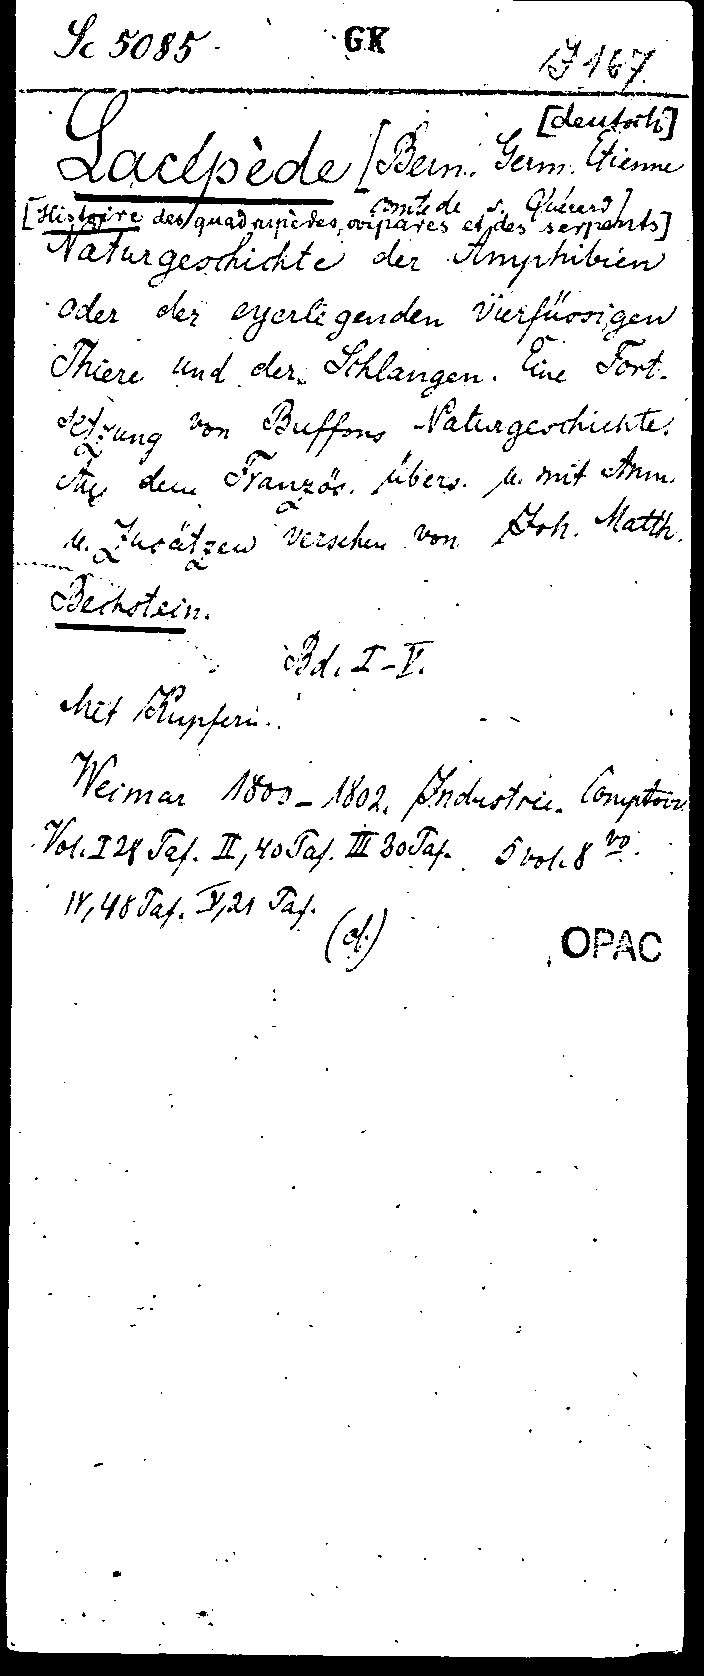 Sc 5085 GK J 167
[deutsch]
Lacépède [Bern. Germ. Etienne
comte de s. Quérard]
[Histoire des quadrupèdes, ovipares et des serpents]
Naturgeschichte der Amphibien
oder der eyerlegenden vierfüssigen
Thiere und der Schlangen. Eine Fort-
setzung von Buffons Naturgeschichte.
Aus dem Französ. übers. u. mit Anm.
u. Zusätzen versehen von Joh. Matth.
Bechstein.
Bd. I-V.
Mit Kupfern.
Weimar 1800-1802. Industrie-Comptoir
Vol. I 28 Taf. II, 40 Taf. III 30 Taf. 5 vol. 8vo.
IV, 48 Taf. V, 21 Taf.
OPAC